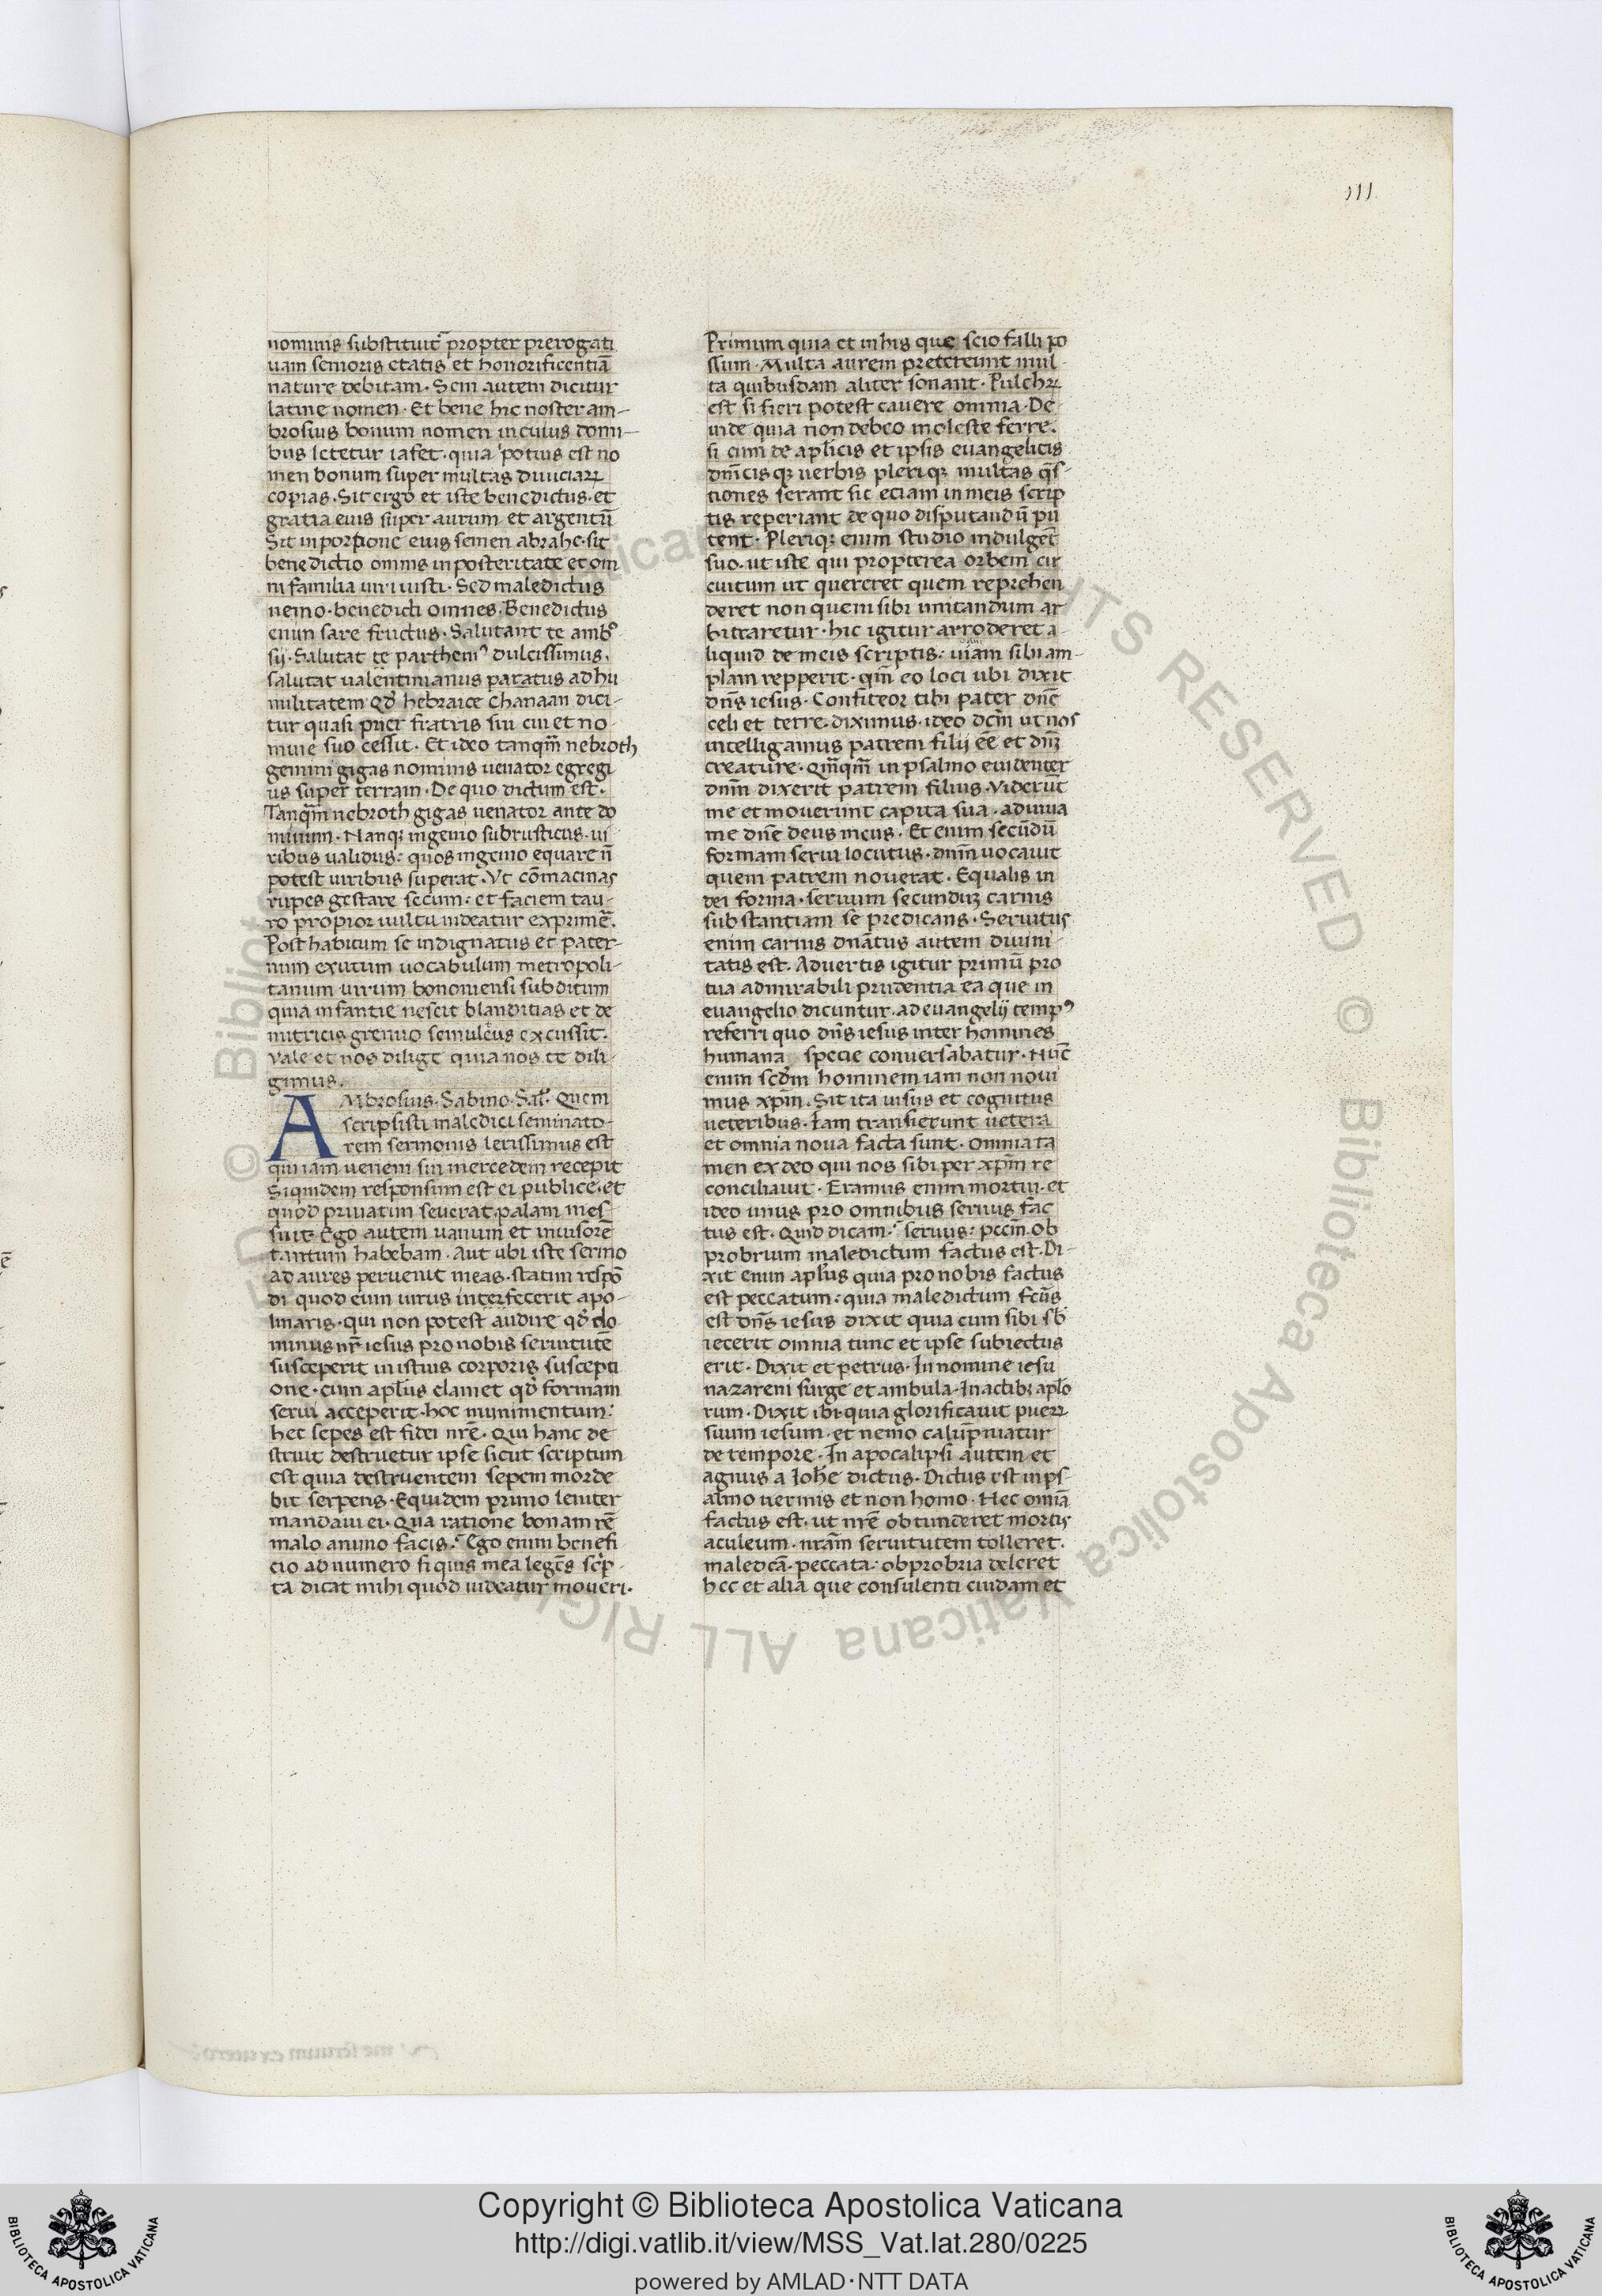 111
nominis substituit propter prerogati
uam senioris etatis et honorificentiā
nature debitam. Sem autem dicitur
latine nomen. Et bene hic noster am-
brosius bonum nomen in cuius domi-
bus letetur iafet. quia potius est no
men bonum super multas diuiciaꝝ
copias. Sit ergo et iste benedictus. et
gratia eius super aurum et argentū
Sit in portione eius semen abrahe. sit
benedictio omnis in posteritate et om
ni familia uiri iusti. Sed maledictus
nemo. benedicti omnes. Benedictus
enim sare fructus. Salutant te ambꝰ
sij. Salutat te parthemꝰ dulcissimus.
salutat ualentinianus paratus ad hu
militatem qđ hebraice chanaan dici-
tur quasi puer fratris sui cui et no-
mine suo cessit. Et ideo tanqm̄ nebroth
gemini gigas nominis uenator egregi
us super terram. De quo dictum est.
Tanqm̄ nebroth gigas uenator ante do
minum. Nanqꝫ ingenio subrusticus. ui
ribus ualidus: quos ingenio equare n̄
potest uiribus superat. Vt cōmacinas
rupes gestare secum: et faciem tau-
ro propior uultu uideatur exprimē.
Post habitum se indignatus et pater-
num exutum uocabulum metropoli-
tanum uirum bononiensi subditum
quia infantie nescit blanditias et de
nutricis gremio semulcus excussit.
Vale et nos dilige quia nos te dili-
gimus.
AMbrosius. Sabino. Sal̄. Quem
scripsisti maledici seminato-
rem sermonis leuissimus est
qui iam ueneni sui mercedem recepit
Siquidem responsum est ei publice. et
quod priuatim seuerat palam mes-
suit. Ego autem uanum et inuisorē
tantum habebam. Aut ubi iste sermo
ad aures peruenit meas. statim respō
di quod eum uirus interfecerit apo-
linaris. qui non potest audire qđ do
minus nr̄ iesus pro nobis seruitutē
susceperit in istius corporis suscepti
one. cum apl̄us clamet qđ formam
serui acceperit. hoc munimentum:
hec sepes est fidei nrē. Qui hanc de
struit destruetur ipse sicut scriptum
est quia destruentem sepem morde
bit serpens. Equidem primo leniter
mandaui ei. Qua ratione bonam rē
malo animo facis. Ego enim benefi
cio adnumero si quis mea legens sc̄p-
ta dicat mihi quod uideatur moueri.
Primum quia et in his que scio falli po
ssum. Multa aurem pretereunt mul-
ta quibusdam aliter sonant. Pulchꝝ
est si fieri potest cauere omnia. De-
inde quia non debeo moleste ferre.
si cum de apl̄icis et ipsis euangelicis
dm̄cisqꝫ uerbis pleriqꝫ multas q̄s-
tiones serant sic eciam in meis scrip
tis reperiant de quo disputandū pu
tent. Pleriqꝫ enim studio indulgēt
suo. ut iste qui propterea orbem cir
cuitum ut quereret quem reprehen
deret non quem sibi imitandum ar
bitraretur. hic igitur arroderet a-
liquid de meis scriptis: uiam sibi am-
plam repperit. qm̄ eo loci ubi dixit
dn̄s iesus. Confiteor tibi pater dn̄e
celi et terre. diximus. ideo dc̄m ut nos
intelligamus patrem filij ēē et dn̄ꝫ
creature. qm̄qm̄ in psalmo euidenter
dnm̄ dixerit patrem filius. Viderūt
me et mouerunt capita sua. adiuua
me dn̄e deus meus. Et enim secūdū
formam serui locutus. dnm̄ uocauit
quem patrem nouerat. Equalis in
dei forma. seruum secunduꝫ carnis
substantiam se predicans. Seruitus
enim carnis dn̄atus autem diuini-
tatis est. Aduertis igitur primū pro
tua admirabili prudentia ea que in
euangelio dicuntur. ad euangelij tempꝰ
referri quo dn̄s iesus inter homines
humana specie conuersabatur. Nūc
enim scđm hominem iam non noui
mus xpm̄. Sit ita uisus et cognitus
ueteribus. Iam transierunt uetera
et omnia noua facta sunt. Omnia ta
men ex deo qui nos sibi per xpm̄ re
conciliauit. Eramus enim mortui. et
ideo unus pro omnibus seruus fac
tus est. Quid dicam: seruus: pccm̄. ob
probrium maledictum factus est. Di-
xit enim apl̄us quia pro nobis factus
est peccatum: quia maledictum fc̄us
est dn̄s iesus dixit quia cum sibi sb̄
iecerit omnia tunc et ipse subiectus
erit. Dixit et petrus. In nomine iesu
nazareni surge et ambula. In actibꝫ apl̄o
rum. Dixit ibi. quia glorificauit pueꝝ
suum iesum. et nemo calūpniatur
de tempore. In apocalipsi autem et
agnus a Ioh̄e dictus. Dictus est in ps-
almo uermis et non homo. Hec omīa
factus est. ut nrē obtunderet mortis
aculeum. nrām seruitutem tolleret.
maledcā. peccata: obprobria deleret
hec et alia que consulenti cuidam et
Copyright © Biblioteca Apostolica Vaticana
http://digi.vatlib.it/view/MSS_Vat.lat.280/0225
powered by AMLAD·NTT DATA
BIBLIOTECA APOSTOLICA VATICANA
BIBLIOTECA APOSTOLICA VATICANA